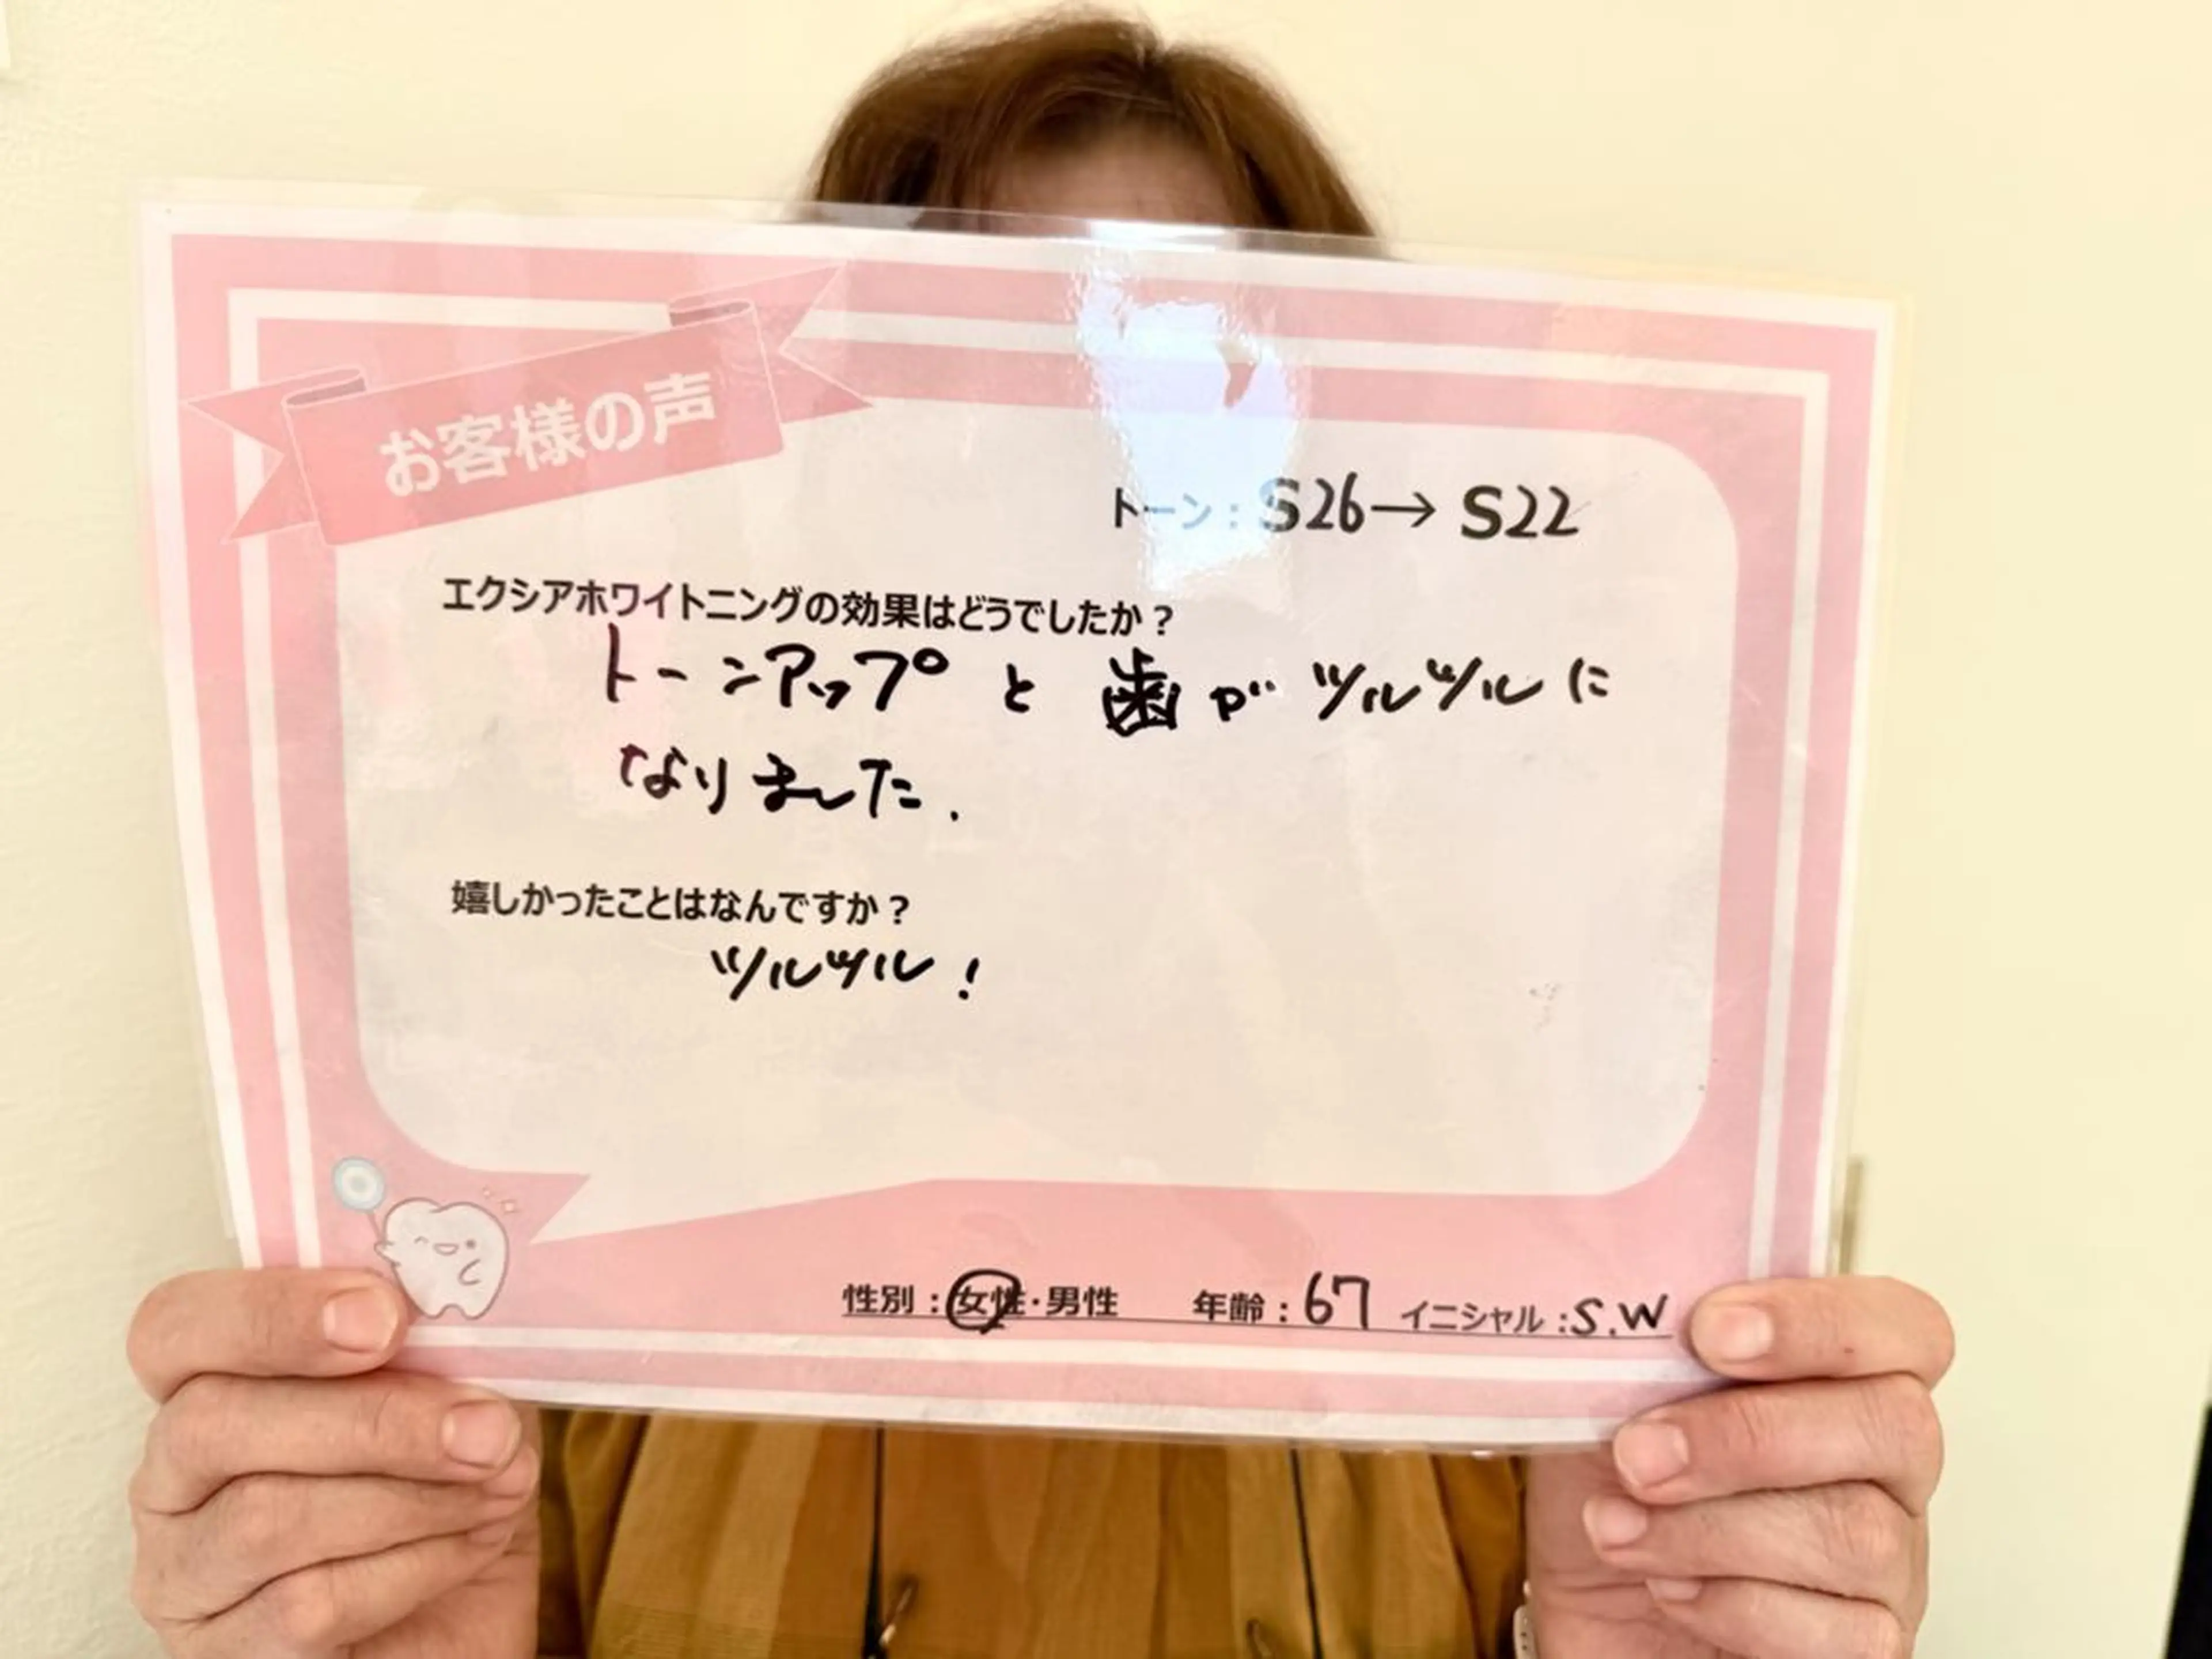 お客様の声
トーン：S26→S22
エクシアホワイトニングの効果はどうでしたか？
トーンアップと歯がツルツルに
なりました.
嬉しかったことはなんですか？
ツルツル！
性別：女性・男性 年齢：67 イニシャル：S.W